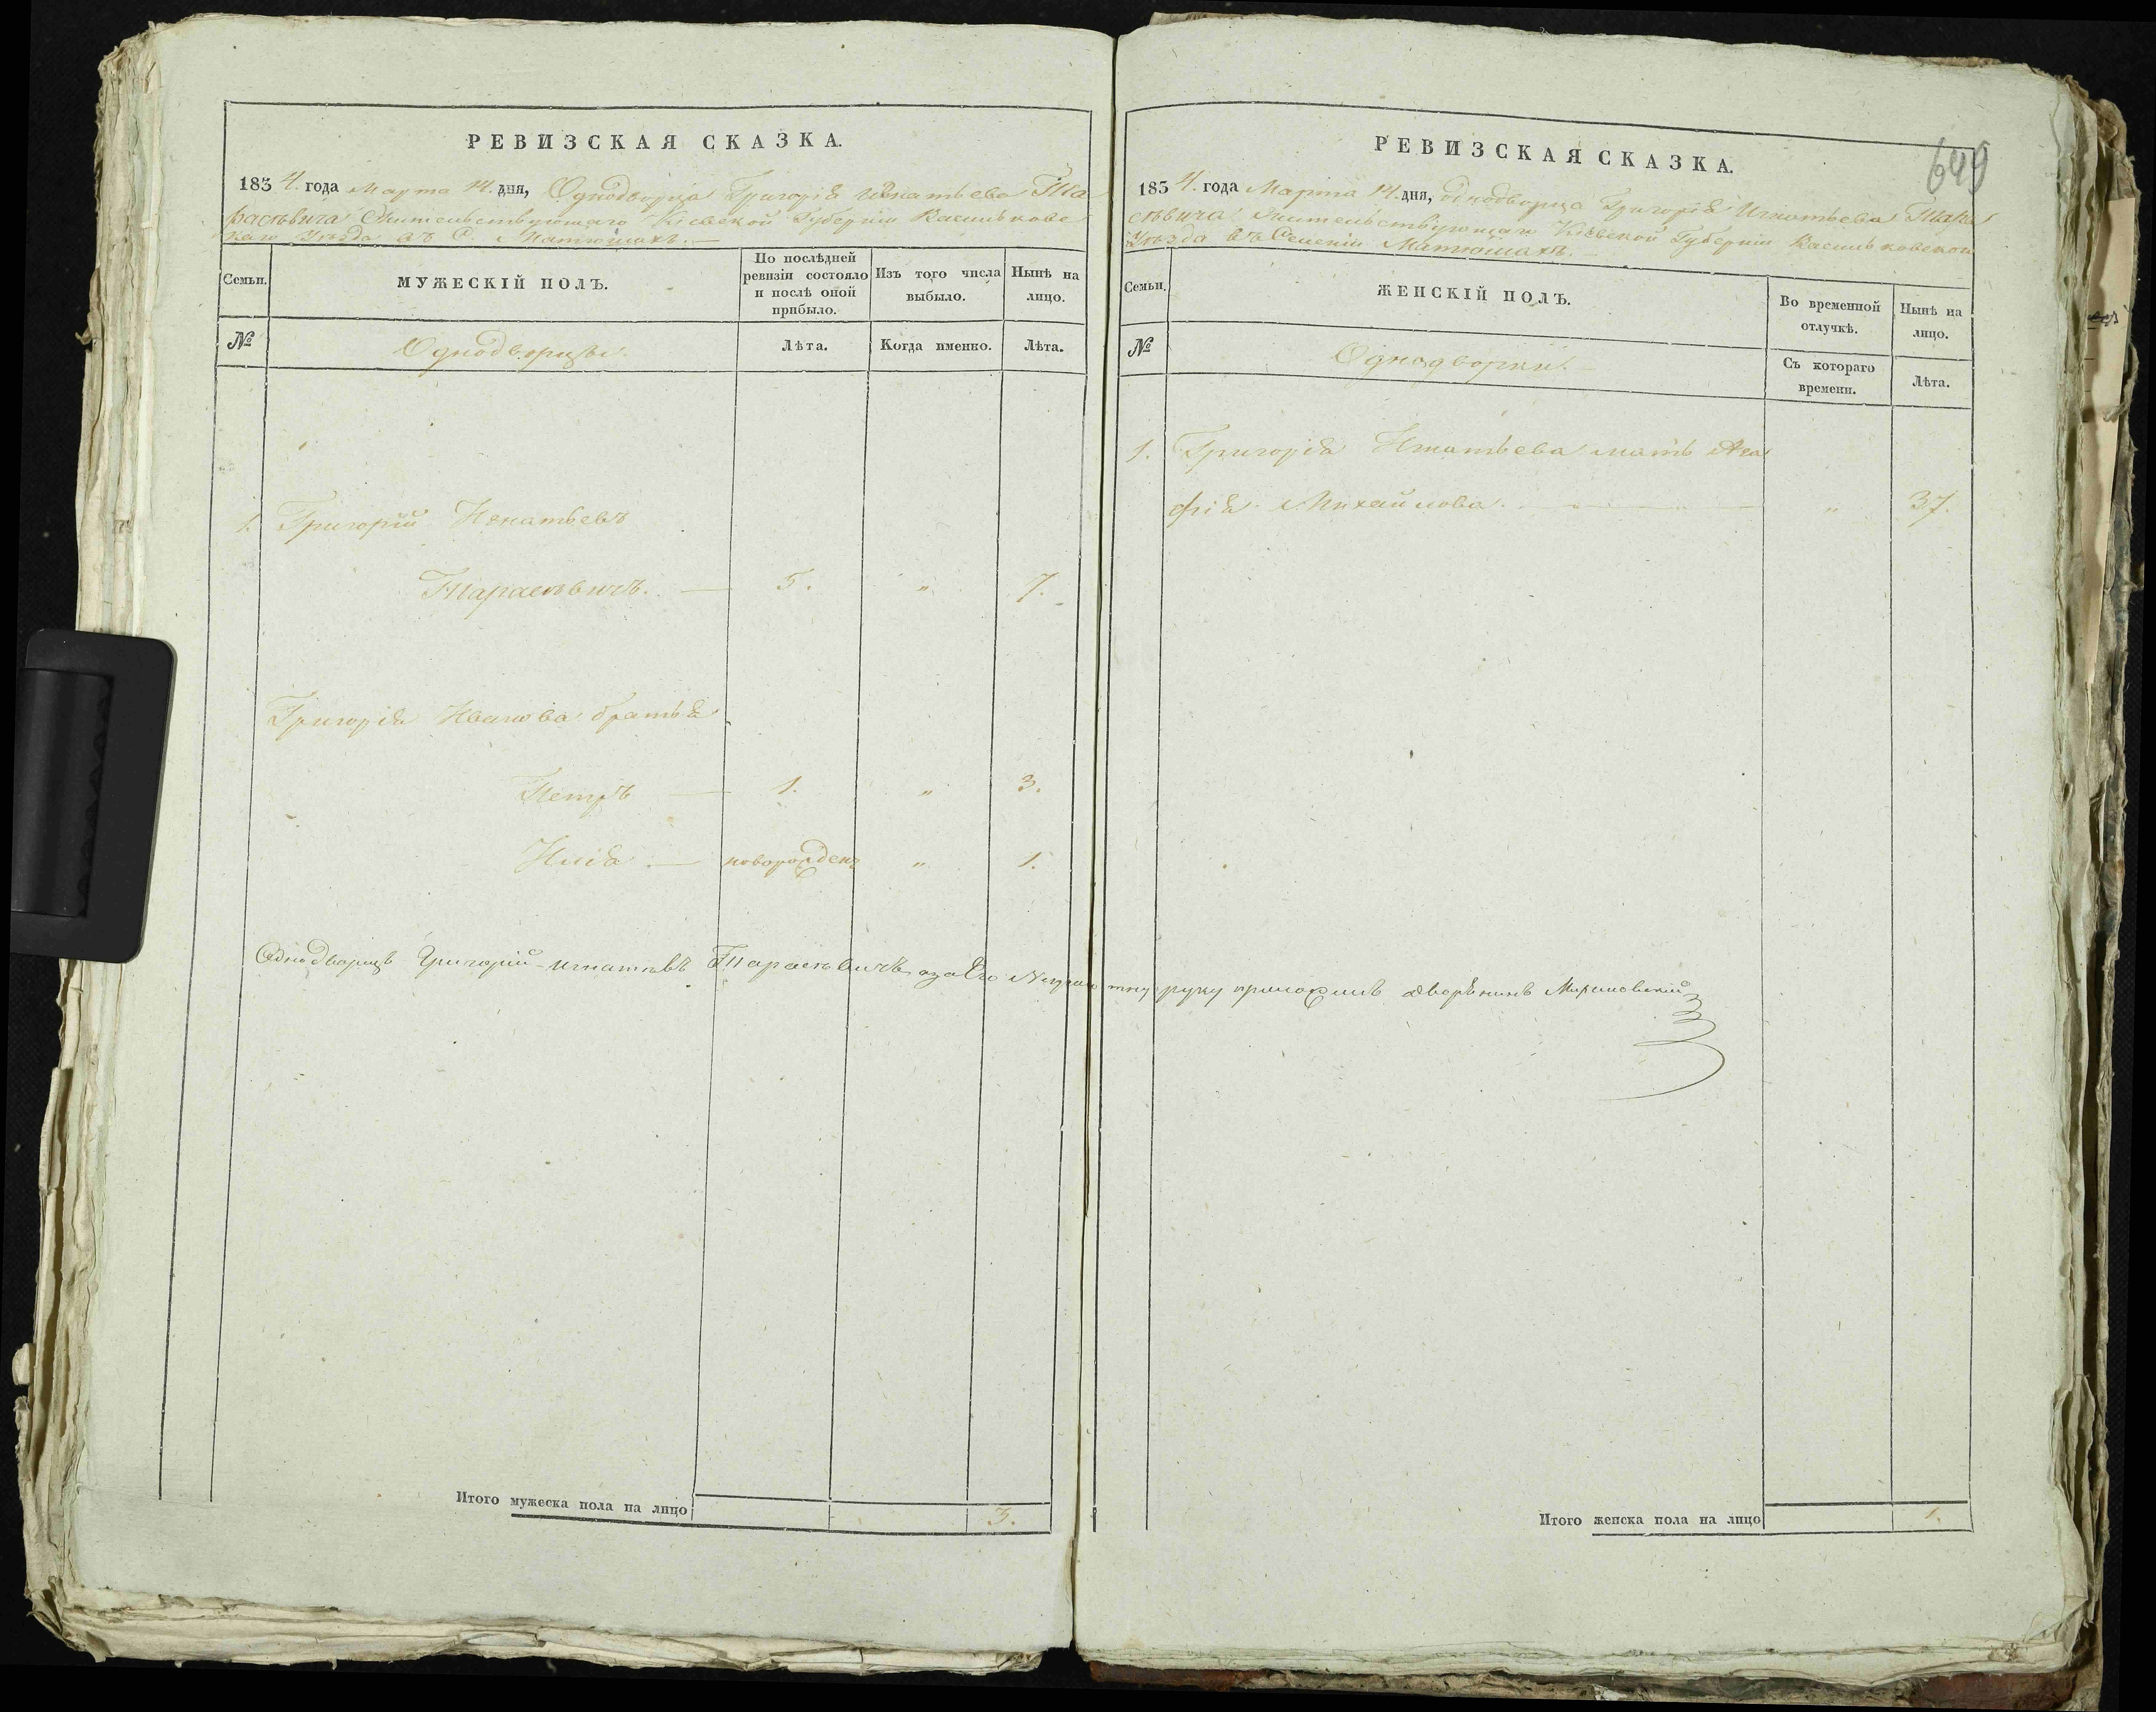 РЕВИЗСКАЯ СКАЗКА.
1834. года Марта 14. дня, Однодворца Григорія Игнатьева Та
расѣвича Жительствующаго Кіевской Губерніи Васильковс
каго Уѣзда въ С. Матюшахъ. —
Семьи.
МУЖЕСКІЙ ПОЛЪ.
По послѣдней ревизіи состояло и послѣ оной прибыло.
Изъ того числа выбыло.
Нынѣ на лицо.
№
Однодворцы.
Лѣта.
Когда именно.
Лѣта.
1. Григорій Игнатьевъ
Тарасѣвичъ. — 5. „ 7.
Григорія Иванова братья
Петръ — 1. „ 3.
Илія — новорожден „ 1.
Однодворецъ Григорій Игнатьевъ Тарасѣвичъ, а за Его Неграмотну руку приложилъ дворянинъ
Итого мужеска пола на лицо 3.
649
РЕВИЗСКАЯ СКАЗКА.
1834. года Марта 14. дня, Однодворца Григорія Игнатьева Тара
сѣвича Жительствующаго Кіевской Губерніи Васильковскои
Уѣзда въ Селеніи Матюшахъ. —
Семьи.
ЖЕНСКІЙ ПОЛЪ.
Во временной отлучкѣ.
Нынѣ на лицо.
№
Однодворки. —
Съ котораго времени.
Лѣта.
1. Григорія Игнатьева мать Ага
фія Михайлова. — „ 37.
Итого женска пола на лицо 1.